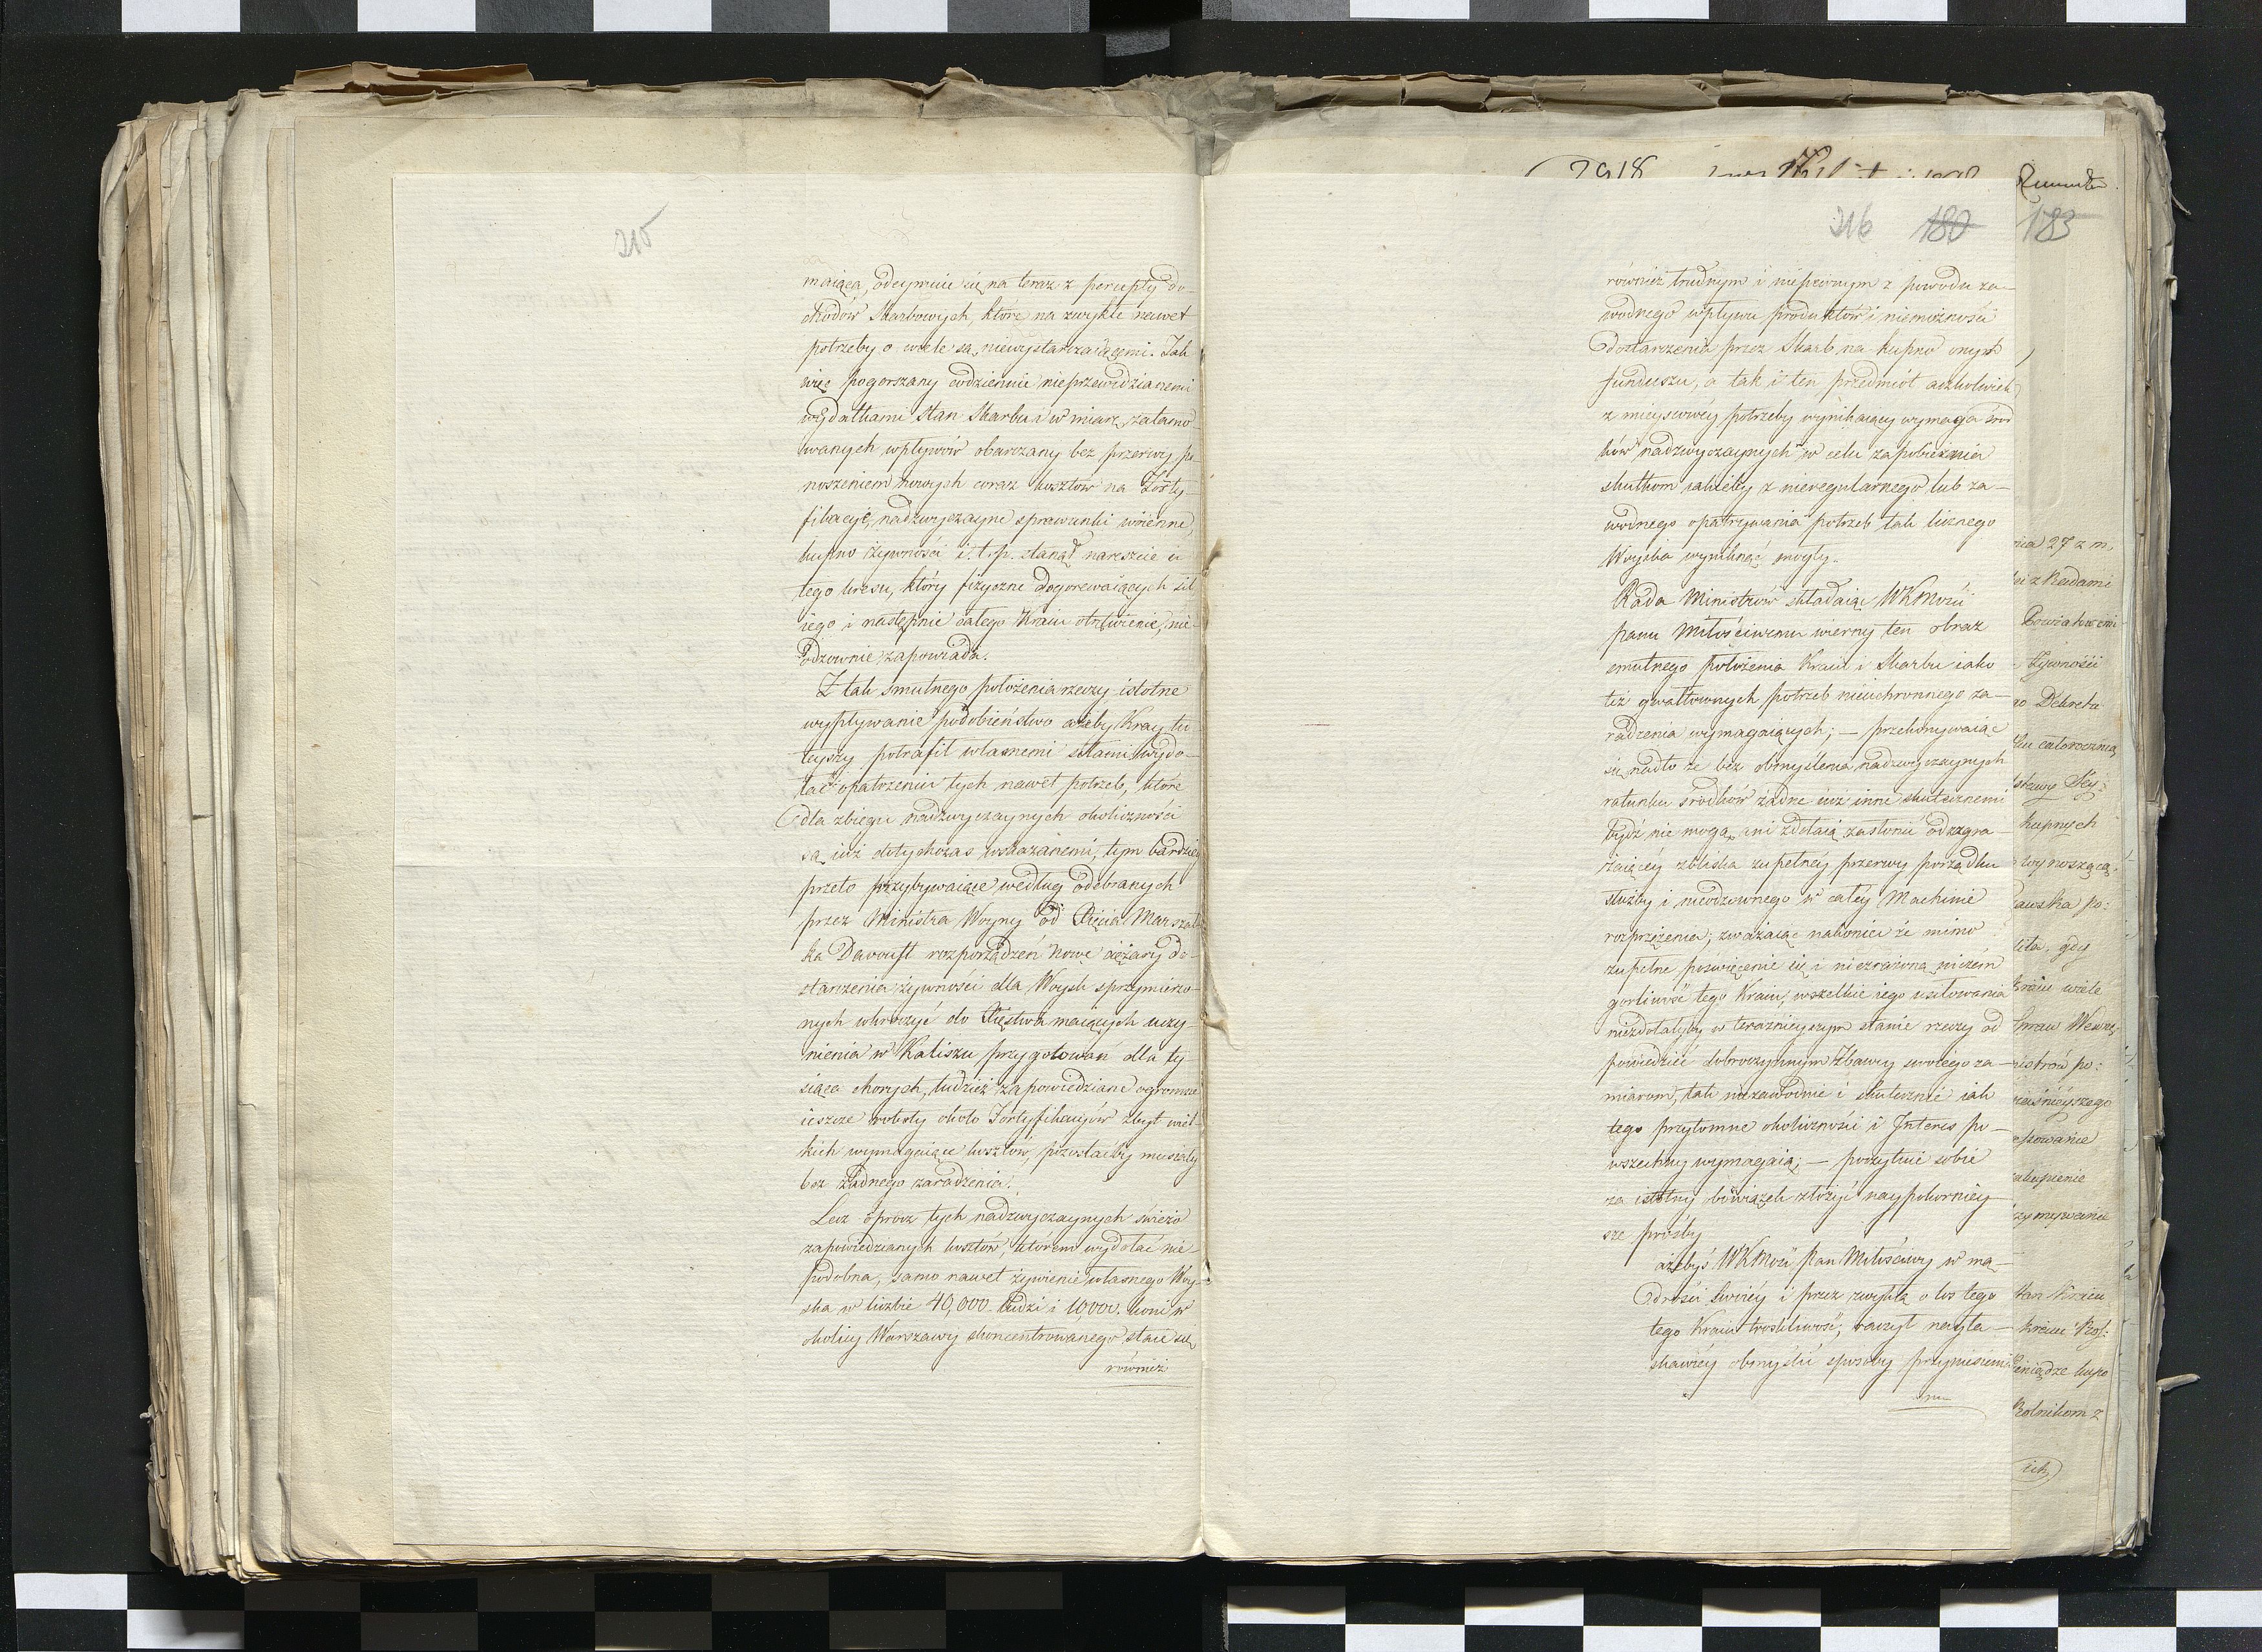 215
maiąca, odeymuie się na teraz z percepty do-
chodów Skarbowych, które na zwykłe nawet
potrzeby o wiele są niewystarczaiącemi. Tak
więc pogorszany codziennie nieprzewidzianemi
wydatkami stan Skarbu w miarę zatamo-
wanych wpływów obarczany bez przerwy po-
noszeniem nowych coraz kosztów na Forty-
fikacye, nadzwyczayne sprawunki woienne,
kupno żywności i. t. p. stanął nareszcie u
tego kresu, który fizyczne dogorewaiących sił
iego i następnie całego Kraiu otrętwienie, nie-
odzownie zapowiada.
Z tak smutnego położenia rzeczy istotne
wypływa nie podobieństwo ażeby Kray tu-
teyszy potrafił własnemi siłami wydo-
łać opatrzeniu tych nawet potrzeb, które
dla zbiegu nadzwyczaynych okoliczności
są iuż dotychczas wskazanemi, tym bardziey
przeto przybywaiące według odebranych
przez Ministra Woyny od Xięcia Marszał-
ka Davoust rozporządzeń nowe ciężary do-
starczenia żywności dla Woysk sprzymierzo-
nych wkroczyć do Xięstwa maiących uczy-
nienia w Kaliszu przygotowań dla ty-
siąca chorych, tudzież zapowiedziane ogromne
ieszcze roboty około Fortyfikacyów zbyt wiel-
kich wymagaiące kosztów, pozostaćby musiały
bez żadnego zaradzenia.
Lecz oprócz tych nadzwyczaynych świeżo
zapowiedzianych kosztów, którem wydołać nie-
podobna, samo nawet żywienie własnego Woy-
ska w liczbie 40,000. ludzi i 10,000. koni w
okolicy Warszawy skoncentrowanego staie się
również
216 180 183
również trudnym i niepewnym z powodu za-
wodnego wpływu produktów i niemożności
dostarczenia przez Skarb na kupno onych
funduszu, a tak i ten przedmiot aczkolwiek
z mieyscowéy potrzeby wynikaiący wymaga środ
ków nadzwyczaynych w celu zapobieżenia
skutkom iakieby z nieregularnego lub za-
wodnego opatrywania potrzeb tak licznego
Woyska wyniknąć mogły.
Rada Ministrów składaiąc WKMości
panu Miłościwemu wierny ten obraz
smutnego położenia Kraiu i Skarbu iako
też gwałtownych potrzeb nieuchronnego za-
radzenia wymagaiących; – przekonywaiąc
się nadto że bez obmyślenia nadzwyczaynych
ratunku środków żadne iuż inne skutecznemi
bydź nie mogą ani zdołaią zasłonić od zagra-
żaiącéy zbliska zupełnéy przerwy porządku
służby i nieodzownego w całéy Machinie
rozprzężenia; zważaiąc nakoniec że mimo
zupełne poświęcenie się i niezrażoną niczém
gorliwość tego Kraiu, wszelkie iego usiłowania
niezdołałyby w teraznieyszym stanie rzeczy od
powiedzieć dobroczynnym Zbawcy swoiego za-
miarom, tak niezawodnie i skutecznie iak
tego przytomne okoliczności i Interes po-
wszechny wymagaią; – poczytuie sobie
za istotny obowiązek złożyć naypokorniey
sze prośby
ażebyś WKMość Pan Miłościwy w mą-
drości swoiéy i przez zwykłą o los tego
tego Kraiu troskliwość, raczył nayła-
skawiéy obmyślić sposoby przyniesienia
mu
nia 27 z m.
Powiatowemi
Żywności
Dekretu
całoroczną
Sey:
kupnych
wynoszącą
po:
gdy
Kraiu wiele
Spraw Wewn.
Ministrów po:
zakupienie
Stan Kraiu
kraiu Ros:
Pieniądze kupo
Rolnikom z
ich